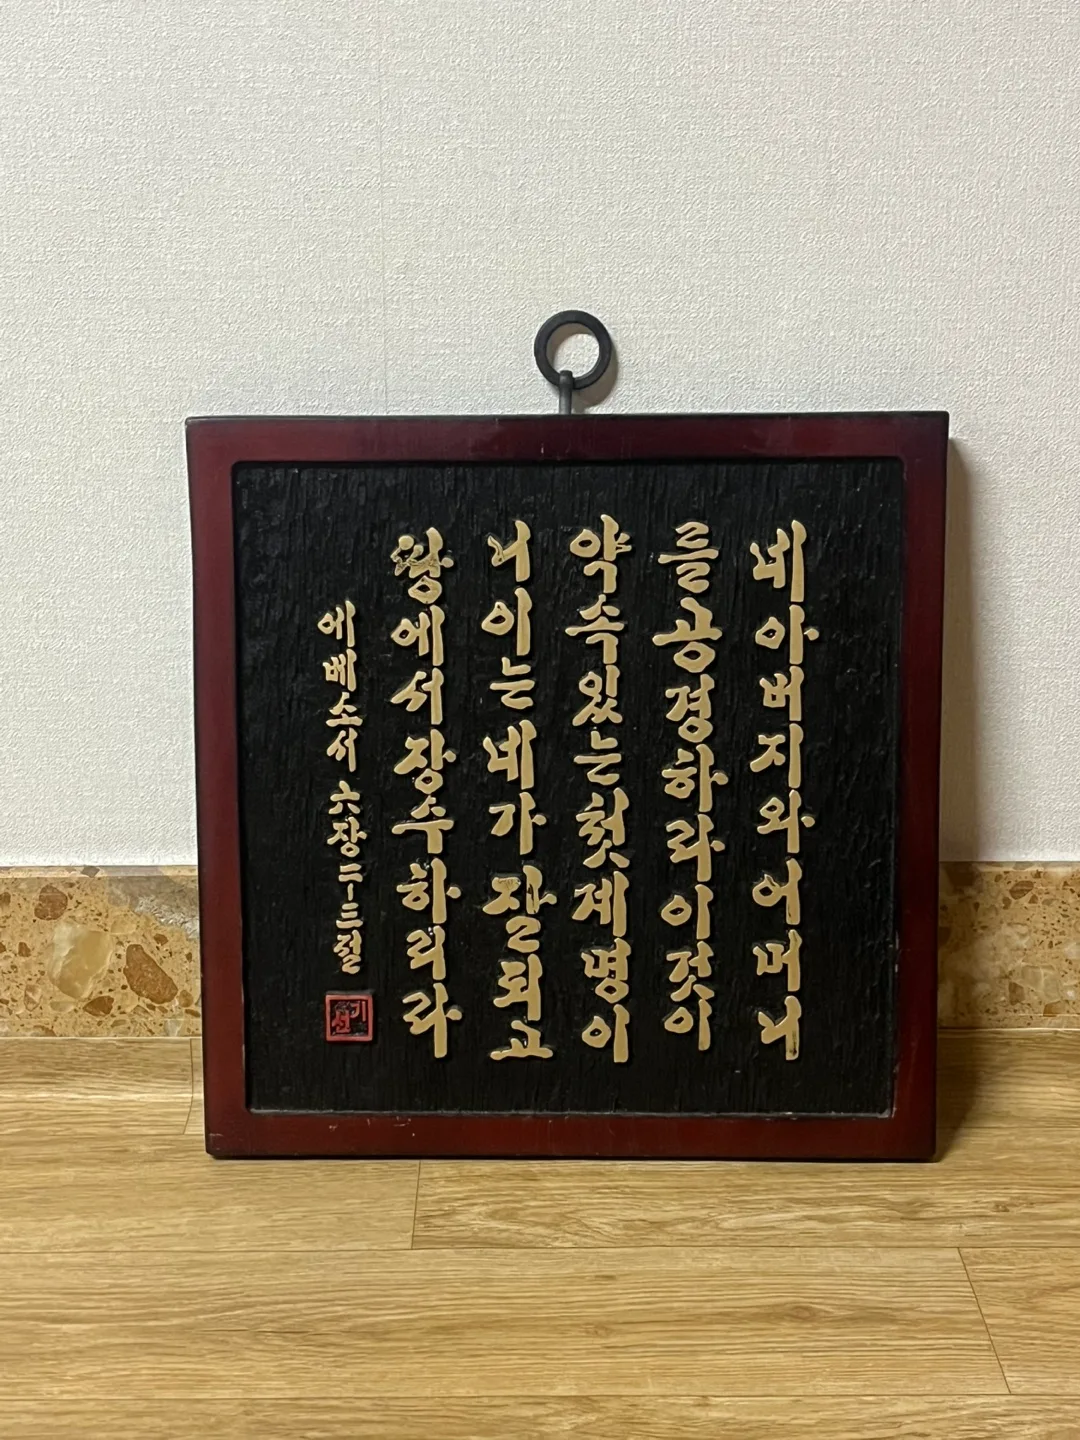 네아버지와어머니
를공경하라이것이
약속있는첫계명이
니이는네가잘되고
땅에서장수하리라
에베소서 六장二-三절
기선